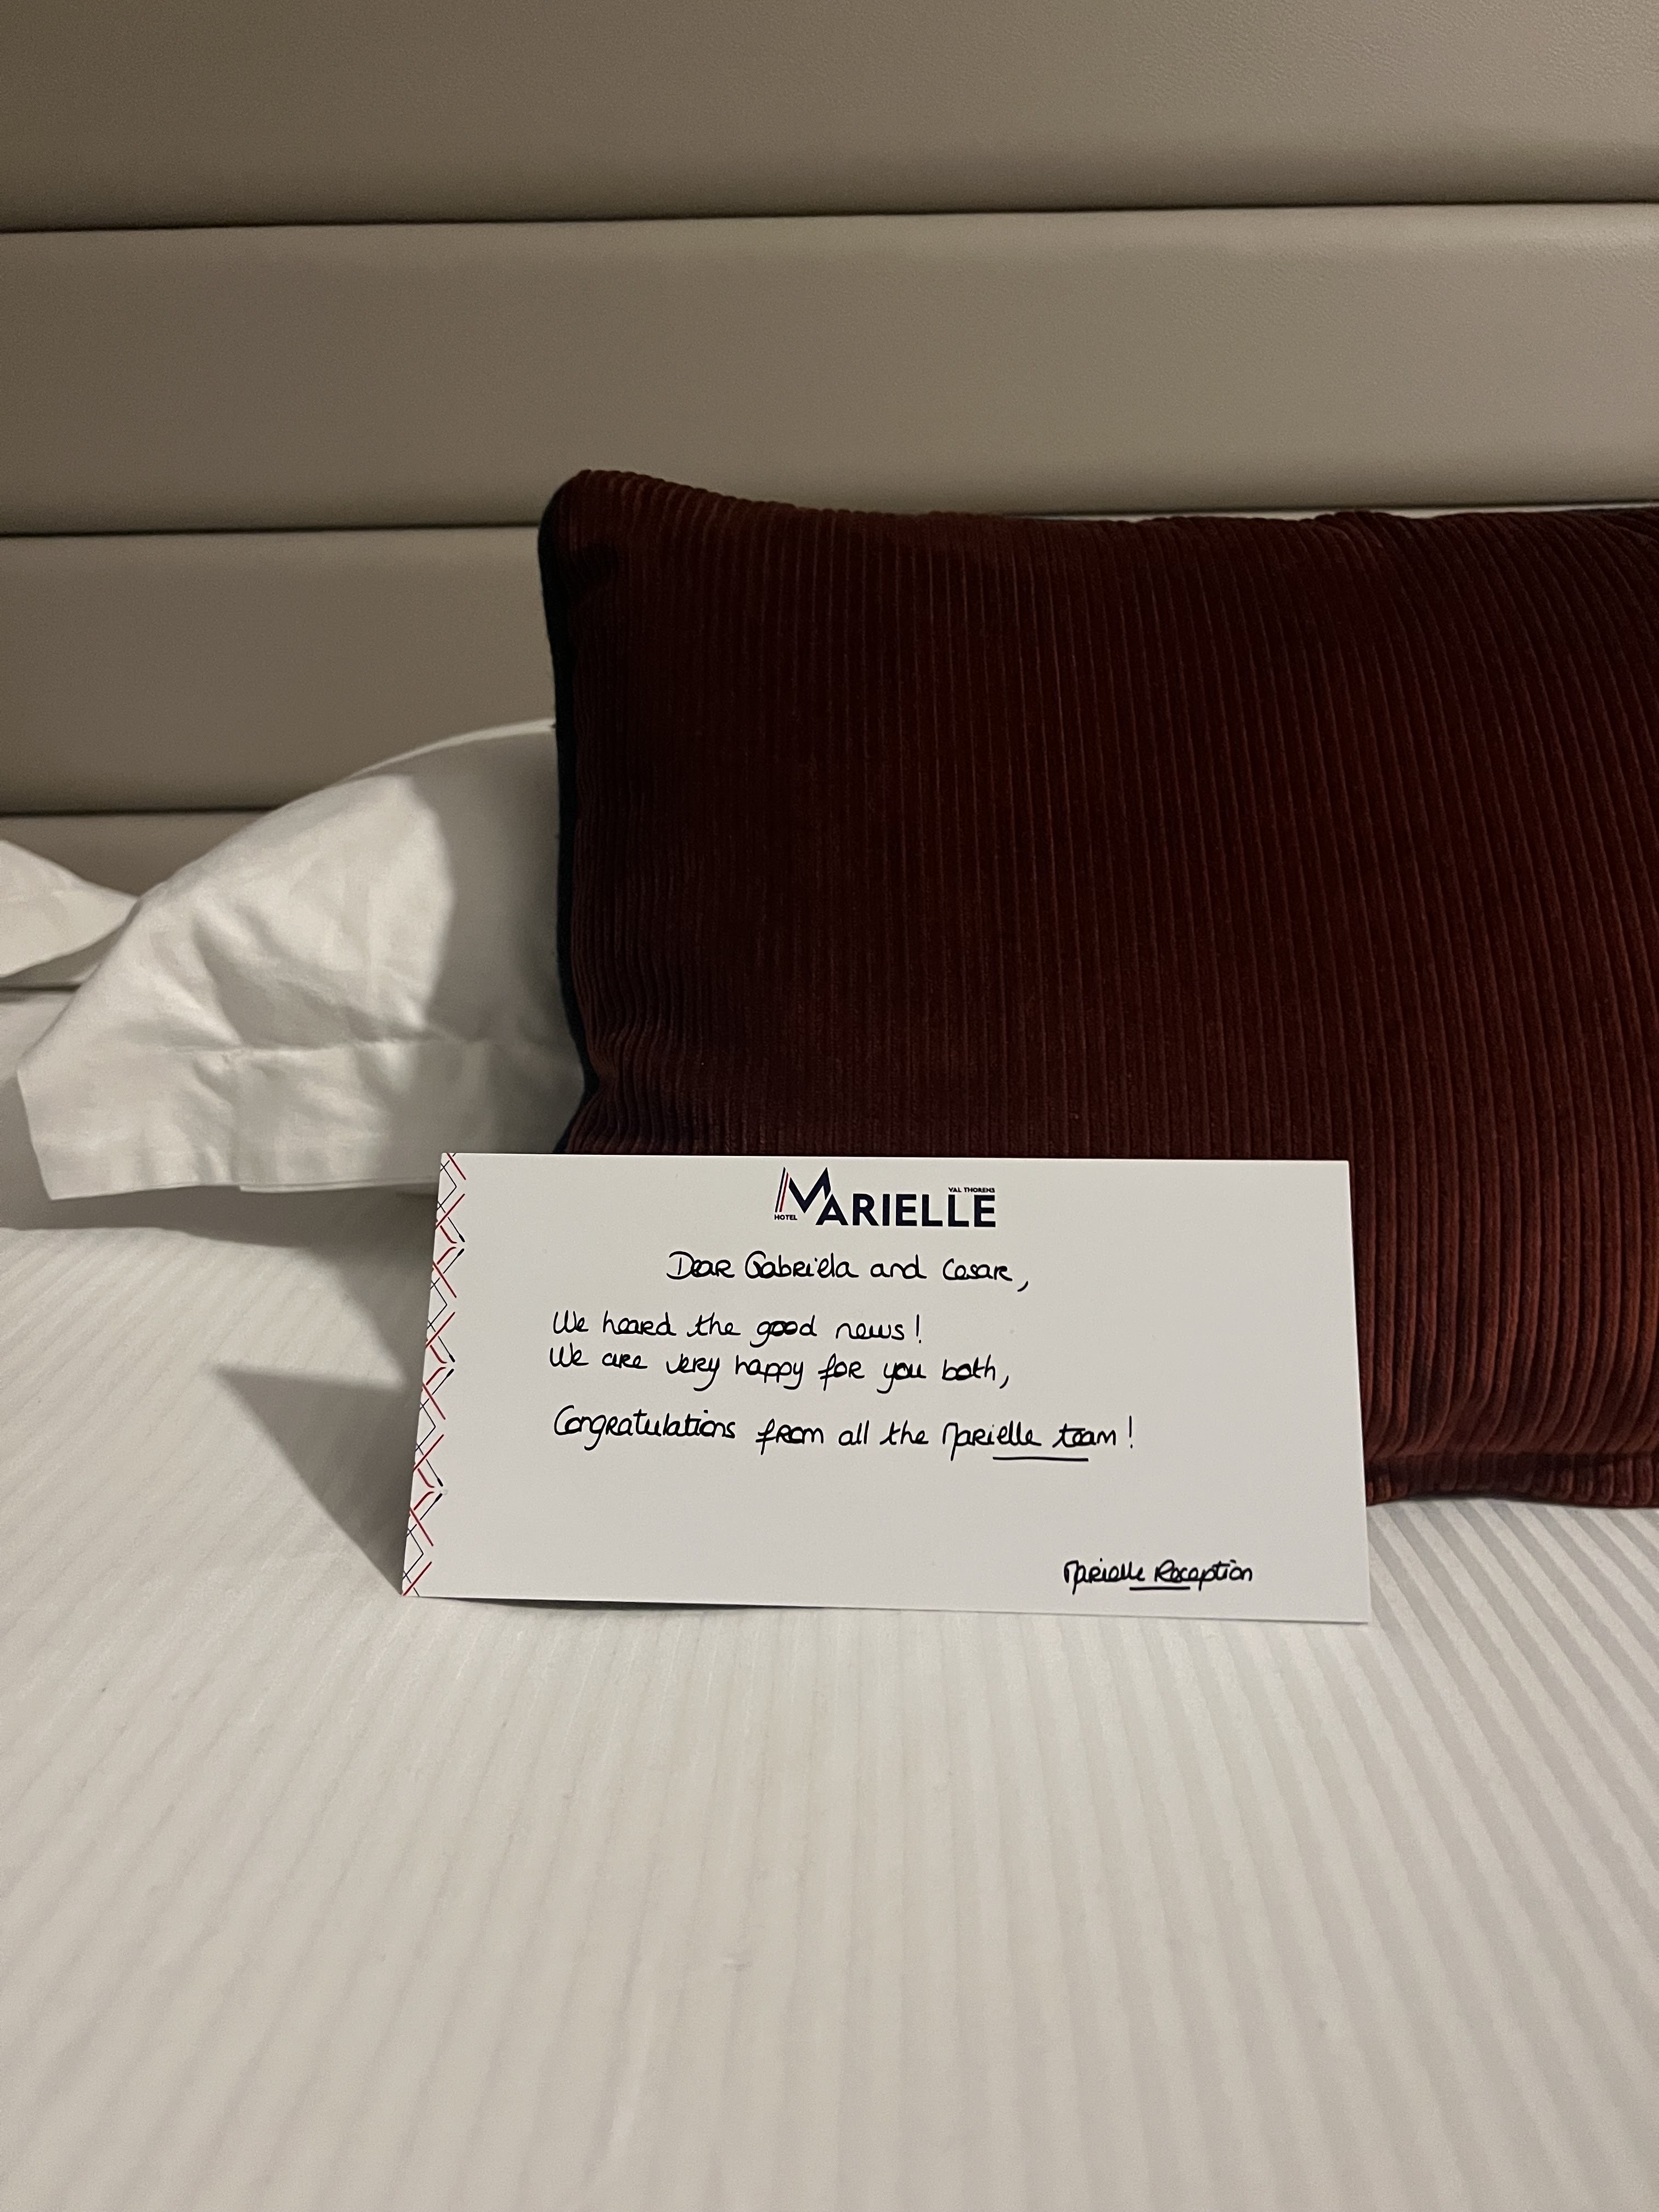 VAL THORENS
HOTEL MARIELLE
Dear Gabriela and Cesare,
We heard the good news!
We are very happy for you both,
Congratulations from all the Marielle team!
Marielle Reception